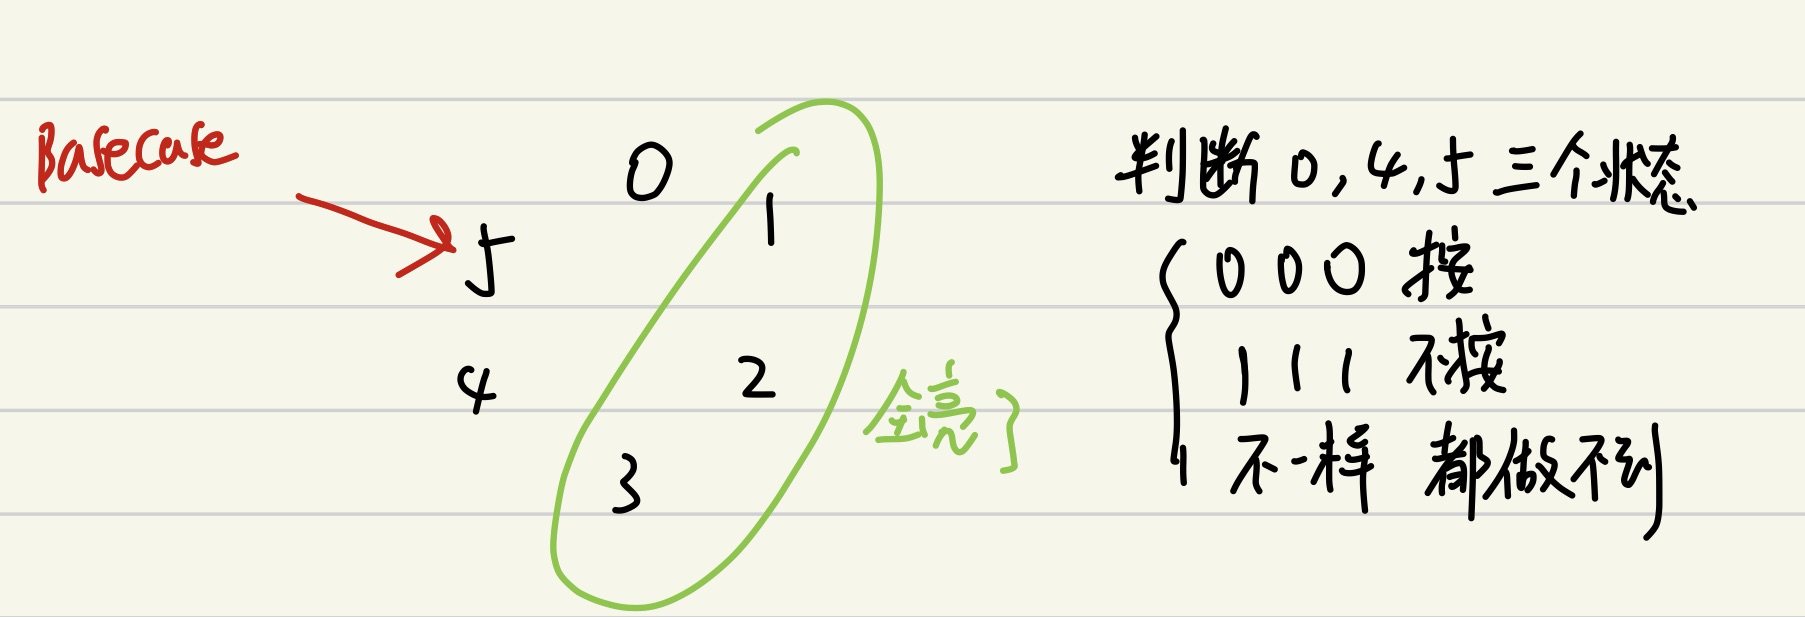 Basecase
0
1
5
4
2
3
全亮}
判断 0,4,5 三个状态
0 0 0 按
1 1 1 不按
不一样 都做不到